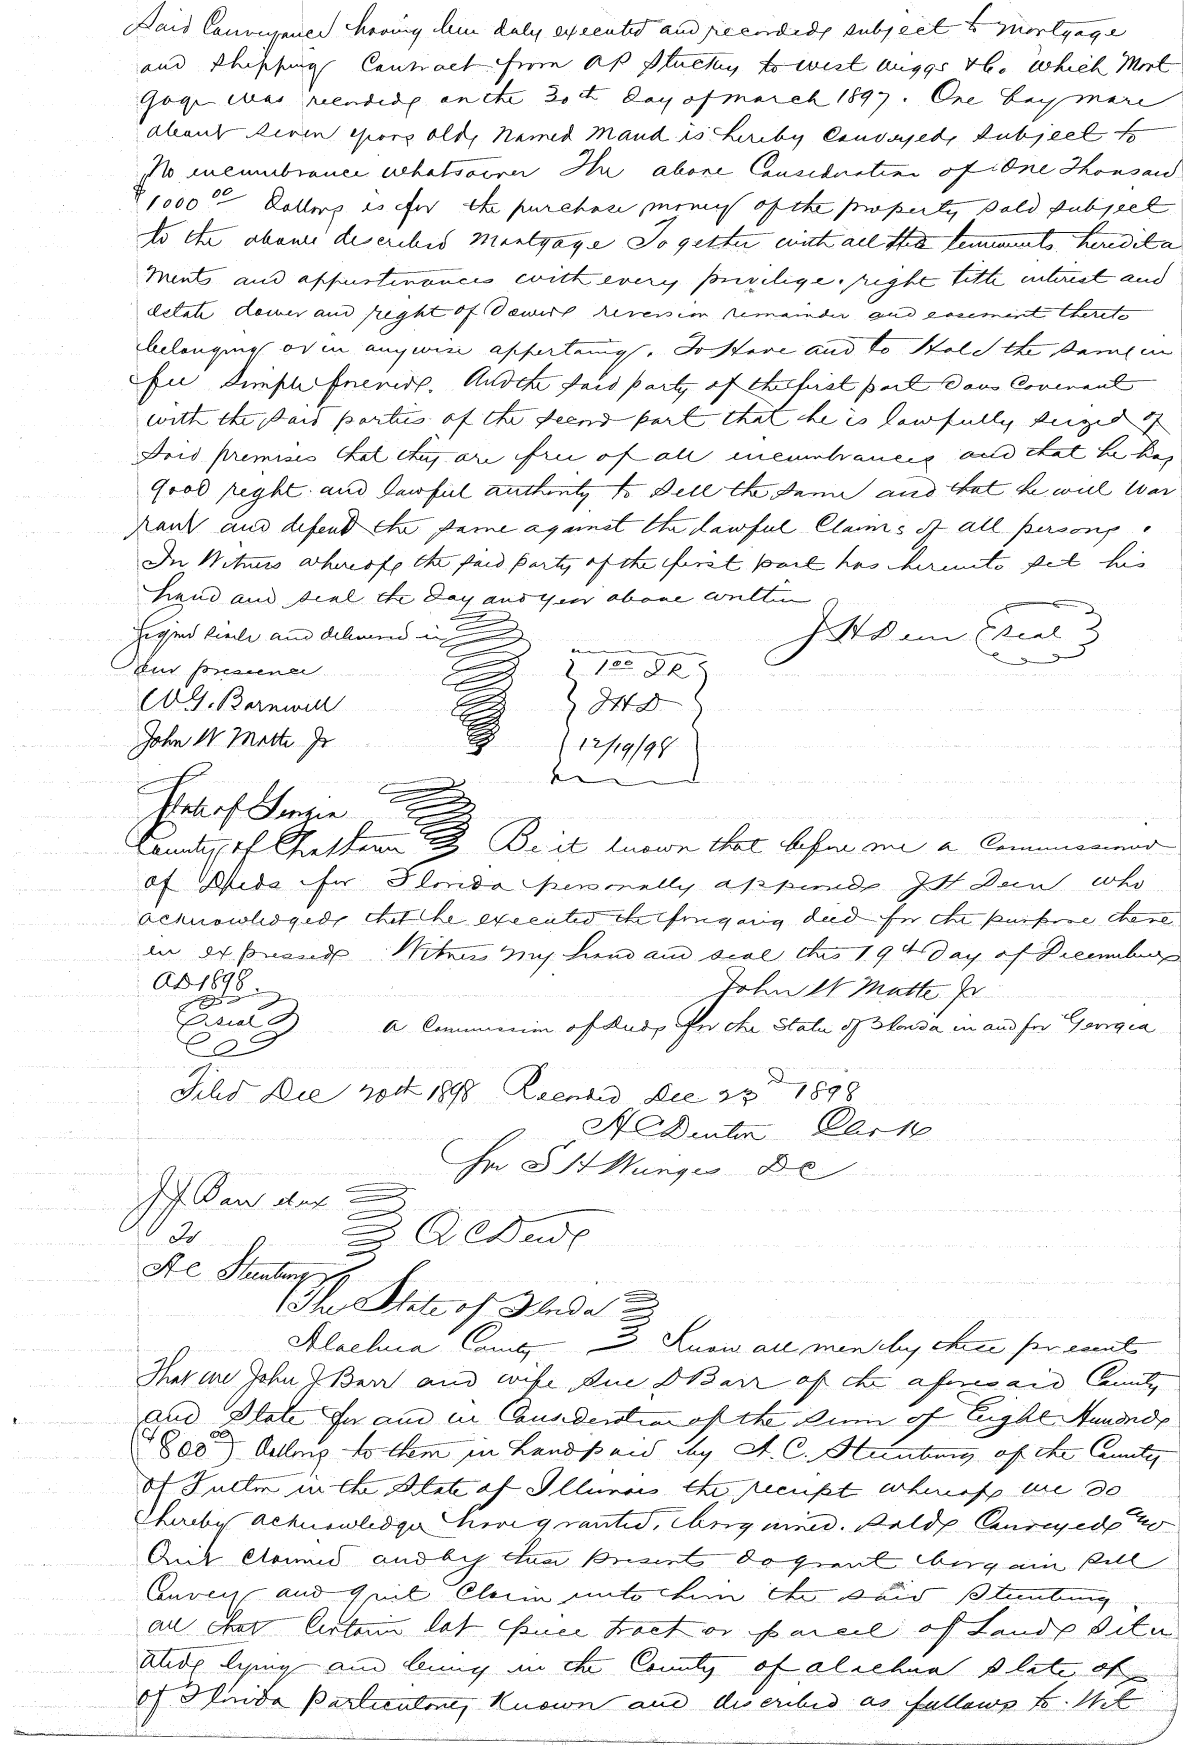 Said Conveyance having been duly executed and recorded, subject to Mortgage
and Shipping Contract from AP Stuckey to West Wiggs & Co. which Mort
gage was recorded on the 30th day of march 1897. One bay mare
about seven years old, Named Maud is hereby Conveyed, Subject to
No incumbrance whatsoever The above Consideration of One Thousand
$1000 00 Dollars is for the purchase money of the property sold subject
to the above described Mortgage Together with all the tenements heredita
ments and appurtenances with every privilege, right title interest and
estate dower and right of Dower reversion remainder and easement thereto
belonging or in anywise appertaing. To Have and to Hold the same in
fee simple forever. And the said party of the first part does Covenant
with the said parties of the second part that he is lawfully seized of
said premises that they are free of all incumbrances and that he has
good right and lawful authority to sell the same and that he will War
rant and defend the same against the lawful Claims of all persons.
In Witness whereof the said party of the first part has hereunto set his
hand and seal the day and year above written
Signed seale and delivered in
J H Deen Seal
our presence
1 00 I R
W. G. Barnwell
J H D
John W Motte Jr
12/19/98
State of Georgia
County of Chatham Be it known that before me a Commissioner
of Deeds for Florida personally appeared J H Deen who
acknowledged, that he executed the foregoing deed for the purpose there
in expressed Witness my hand and seal this 19th day of December
AD 1898.
John W Motte Jr
Seal
a Commission of Deeds for the State of Florida in and for Georgia
Filed Dec 20th 1898 Recorded Dec 23d 1898
H C Denton Clerk
Per S H Wienges DC
J J Barr et ux
To
Q C Deed
A C Steenburg
The State of Florida
Alachua County Know all men by these presents
That we John J Barr and wife Sue D Barr of the aforesaid County
and State for and in Consideration of the sum of Eight Hundred
($800 00) Dollars to them in hand paid by A. C. Steenburg of the County
of Fulton in the State of Illinois the receipt whereof we do
hereby acknowledge have granted, bargained. sold, Conveyed and
Quit Claimed and by these presents do grant bargain sell
Convey and quit Claim unto him the said Steenburg
all that Certain lot piece tract or parcel of Land, Situ
ated, lying and being in the County of alachua State of
of Florida Particularly Known and described as follows to. Wit